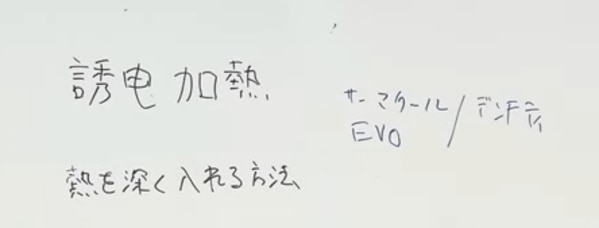 誘電加熱
サーマクール/デンシティ
EVO
熱を深く入れる方法